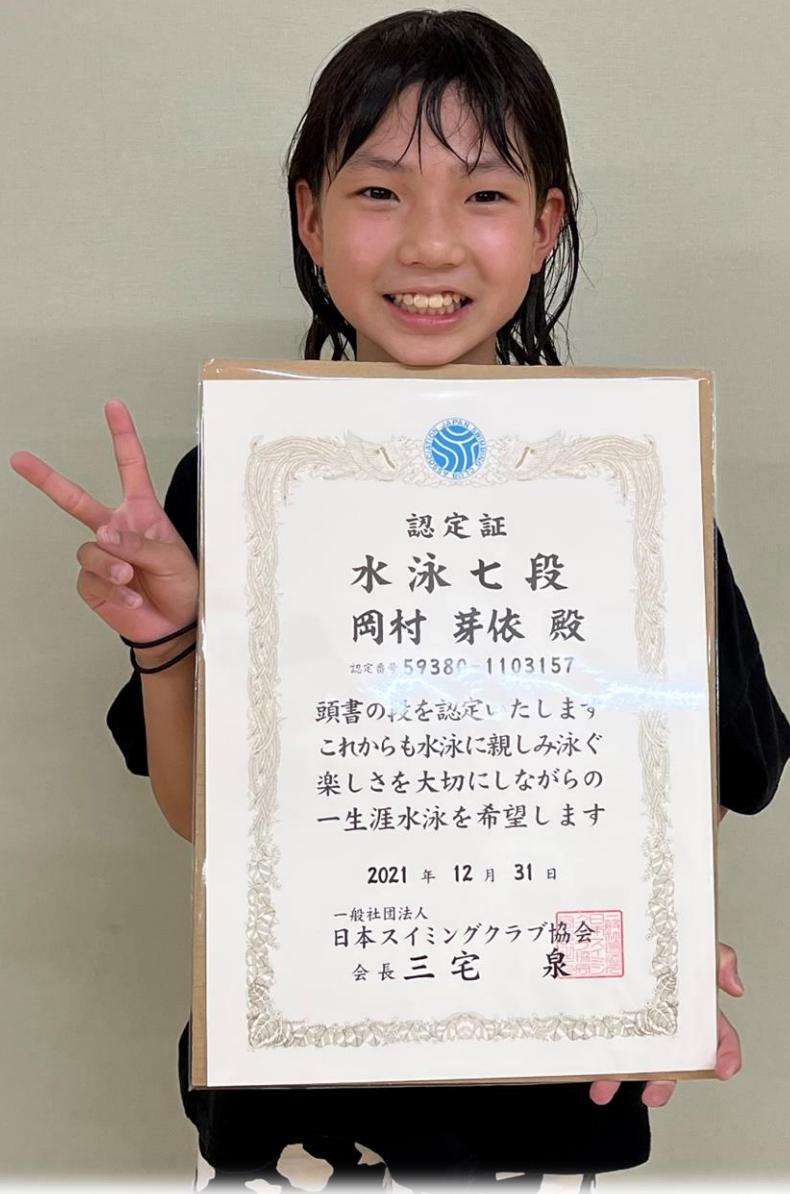 認定証
水泳七段
岡村 芽依 殿
認定番号 59380-1103157
頭書の段を認定いたします
これからも水泳に親しみ泳ぐ
楽しさを大切にしながらの
一生涯水泳を希望します
2021 年 12 月 31 日
一般社団法人
日本スイミングクラブ協会
会長 三宅 泉